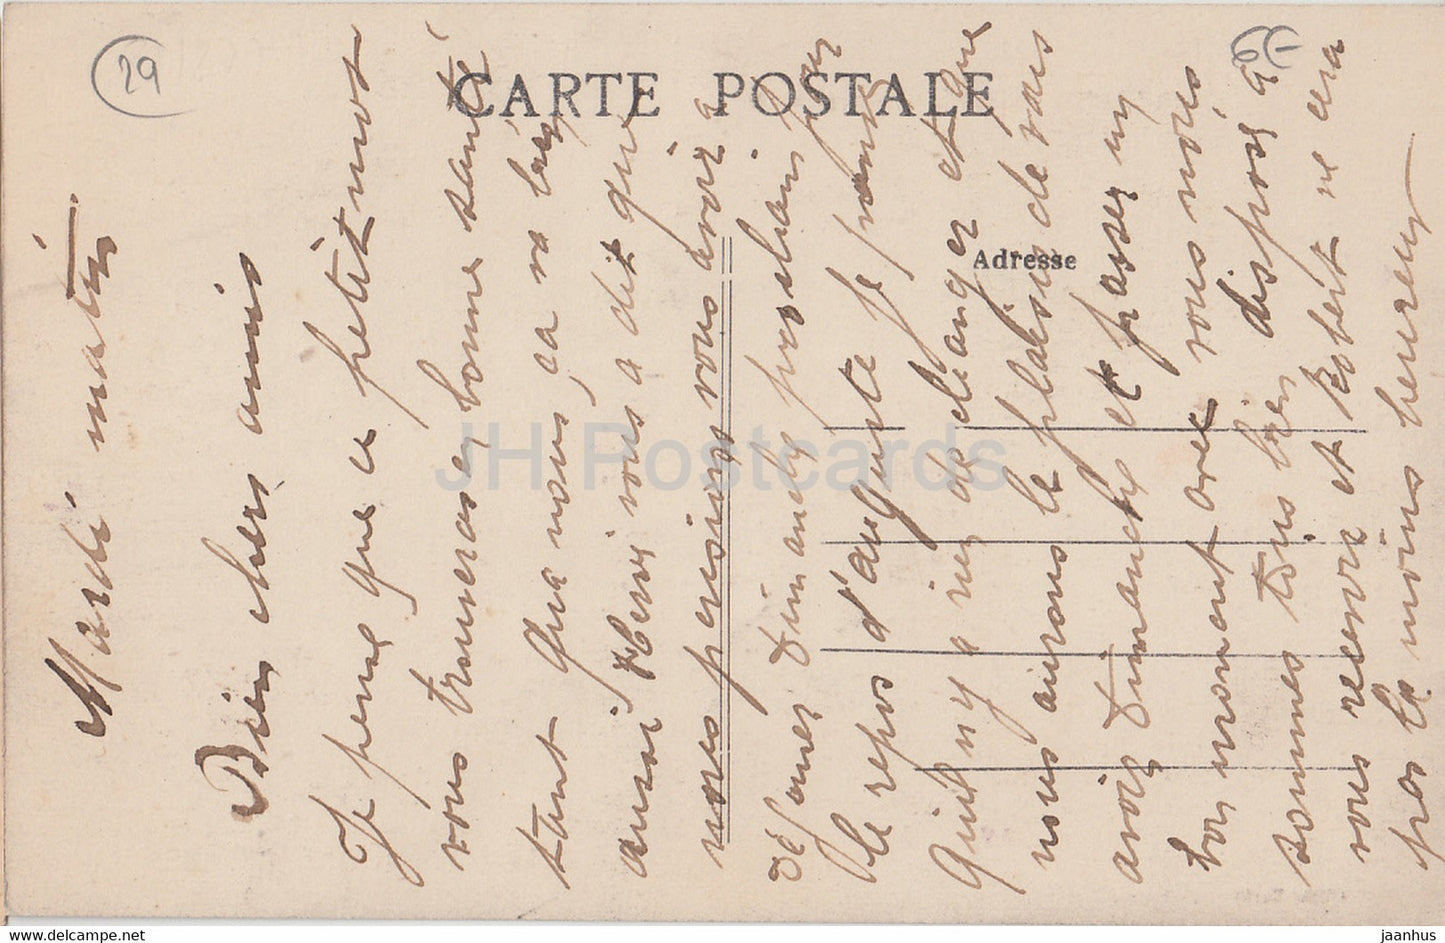 29
6-
CARTE POSTALE
Adresse
Mardi matin
Bien chers amis
Je pense que ce petit mot
vous trouveras en bonne santé
tant qua nous, ca va bien
aussi Henri vous a dit que
nous pensions vous avoir a
déjeuner Dimanche prochain
le repos d'auguste je pense
qu'il n'y a rien de changer et que
nous aurons le plaisir de vous
avoir Dimanche et passer un
bon moment avec vous nous
sommes tous bien disposé a
vous recevoir et Robert ne sera
pas le moins heureux
JH Postcards
www.jaanhus.com
jaanhus